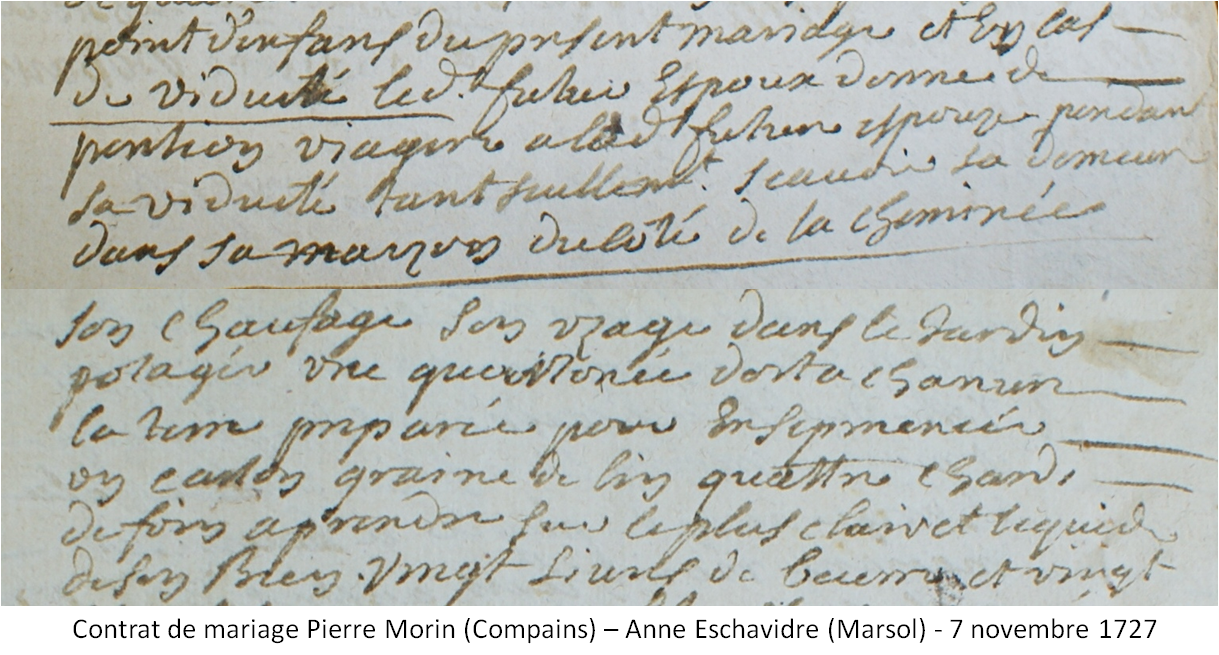 point d'enfans du present mariage et En cas
de viduité led.t futur Espoux donne de
pention viagere a lad.t future espouze pendant
sa viduité tant seullem.t scavoir sa demeure
dans sa maizon du coté de la cheminée
son chaufage son uzage dans le Jardin
potager une quartonée dorta chanvre
la terre preparée pour Ensepmencér
un carton graine de lin quattre chards
de foin a prendre sur le plus clair et liquide
de son Bien Vingt Livres de beurre et vingt
Contrat de mariage Pierre Morin (Compains) – Anne Eschavidre (Marsol) - 7 novembre 1727